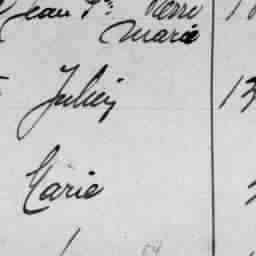 Jean Pre Pierre
Marie
Julien 13
Marie